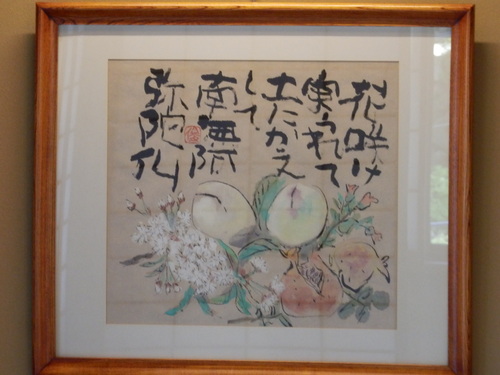 花咲け
実うれて
土にかえ
して
南無阿
弥陀仏